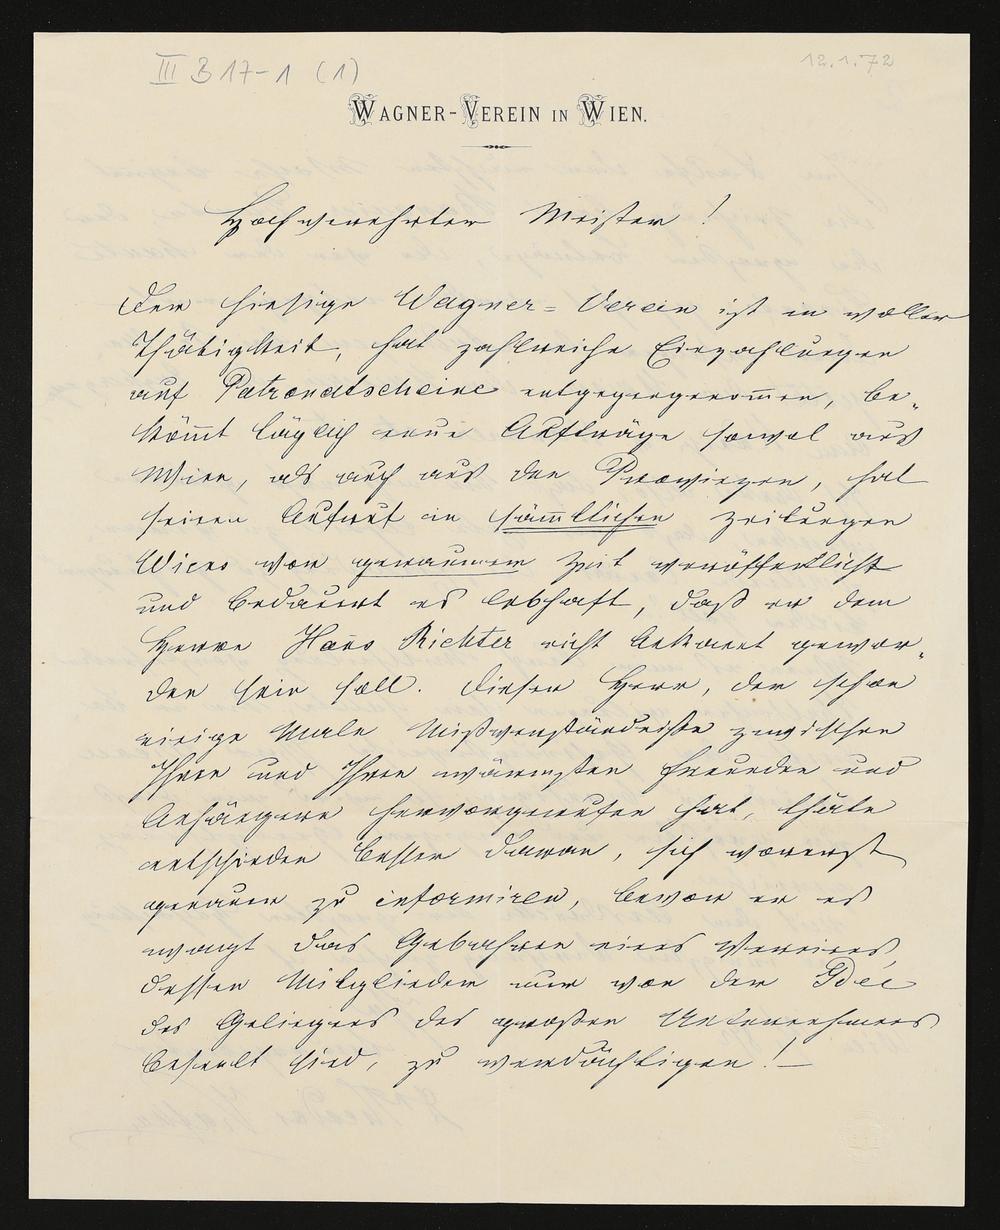 III B 17-1 (1)
12.1.72
WAGNER-VEREIN IN WIEN.
Hochverehrter Meister!
Der hiesige Wagner=Verein ist in voller
Thätigkeit, hat zahlreiche Einzahlungen
auf Patronatscheine entgegengenom̅en, be„
köm̅t täglich neue Aufträge sowol aus
Wien, als auch aus den Provinzen, hat
seinen Aufruf in säm̅tlichen Zeitungen
Wiens vor geraumer Zeit veröffentlicht
und bedauert es lebhaft, daß er dem
Herrn Han̅s Richter nicht bekannt gewor„
den sein soll. Dieser Herr, der schon
einige Male Mißverständniße zwischen
Ihnen und Ihren wärmsten Freunden und
Anhängern hervorgerufen hat, thäte
entschieden besser daran, sich vorerst
genauer zu informiren, bevor er es
wagt das Gebahren eines Vereines,
dessen Mitglieder nur von der Idee
des Gelingens des großen Unternehmens
beseelt sind, zu verdächtigen! —